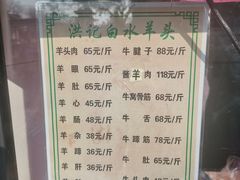 洪记白水羊头
羊头肉 65元/斤 牛腱子 88元/斤
羊眼 65元/斤 酱羊肉 118元/斤
羊肚 65元/斤 牛窝骨筋 68元/斤
羊心 45元/斤 牛舌 68元/斤
羊肠 48元/斤 牛蹄筋 78元/斤
羊杂 38元/斤 牛肚 65元/斤
羊蹄 36元/斤
羊肝 36元/斤